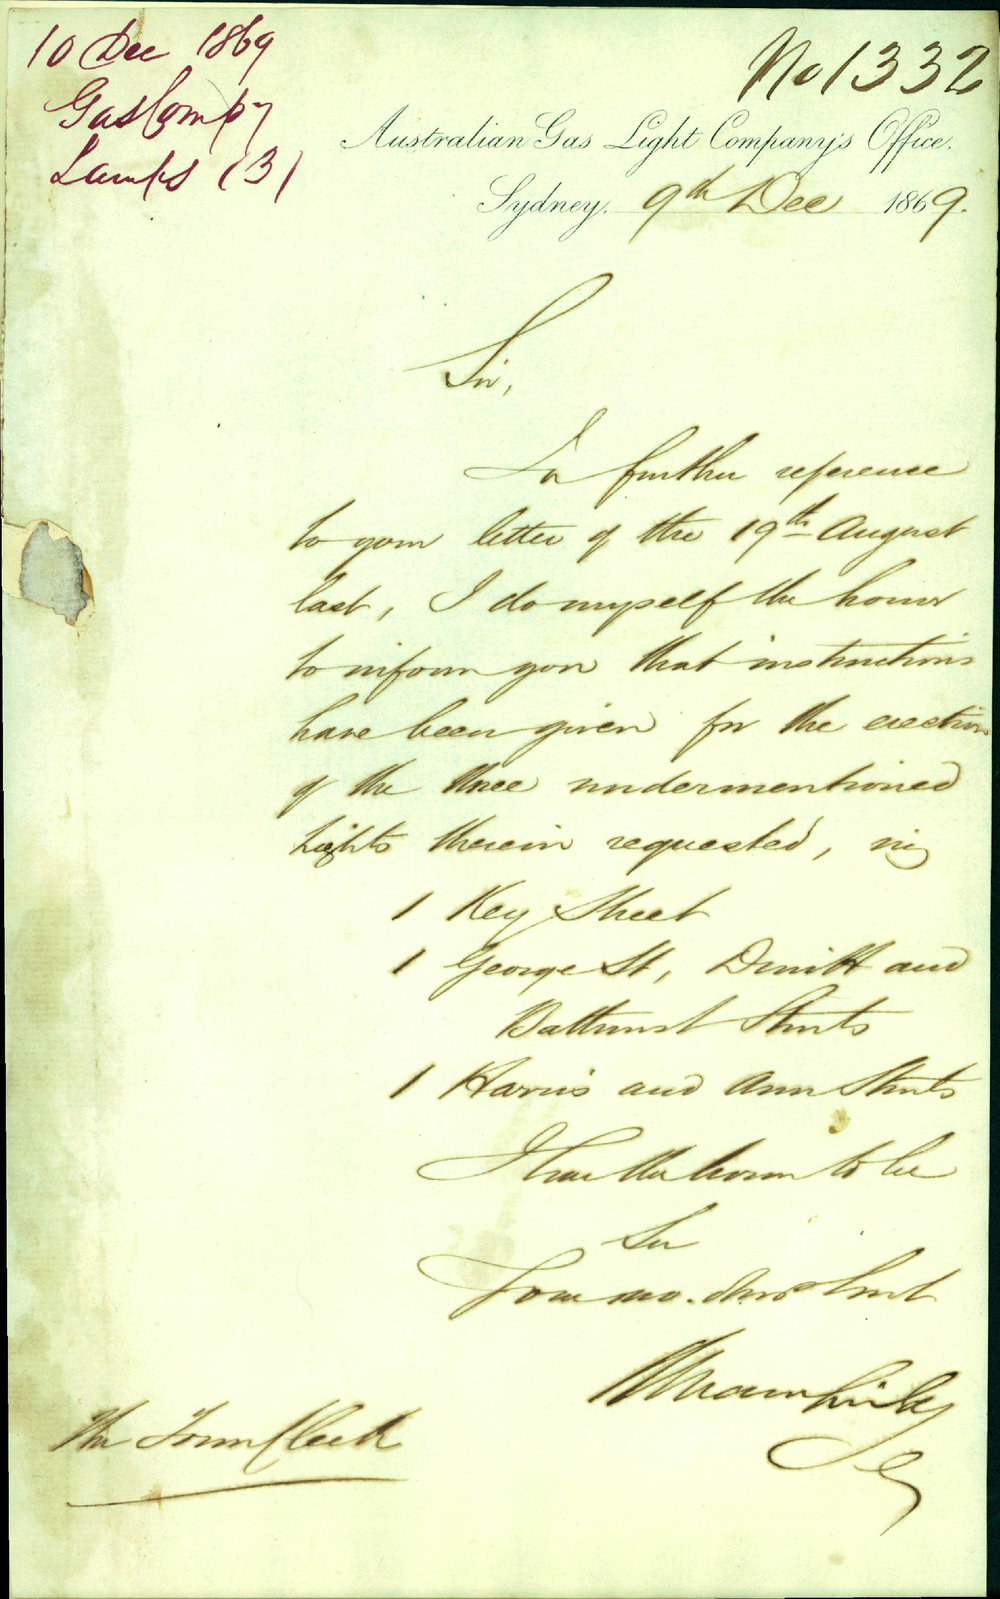 10 Dec 1869
Gas Compy
Lamps (3)
No 1332
Australian Gas Light Company's Office.
Sydney, 9th Dec 1869.
Sir,
In further reference
to your letter of the 19th August
last, I do myself the honor
to inform you that instructions
have been given for the erection
of the three undermentioned
lights therein requested, viz
1 Key Street
1 George St, Druitt and
Bathurst Streets
1 Harris and Ann Streets
I have the honor to be
Sir
Your mo. Obt Servt
Secy
The Town Clerk